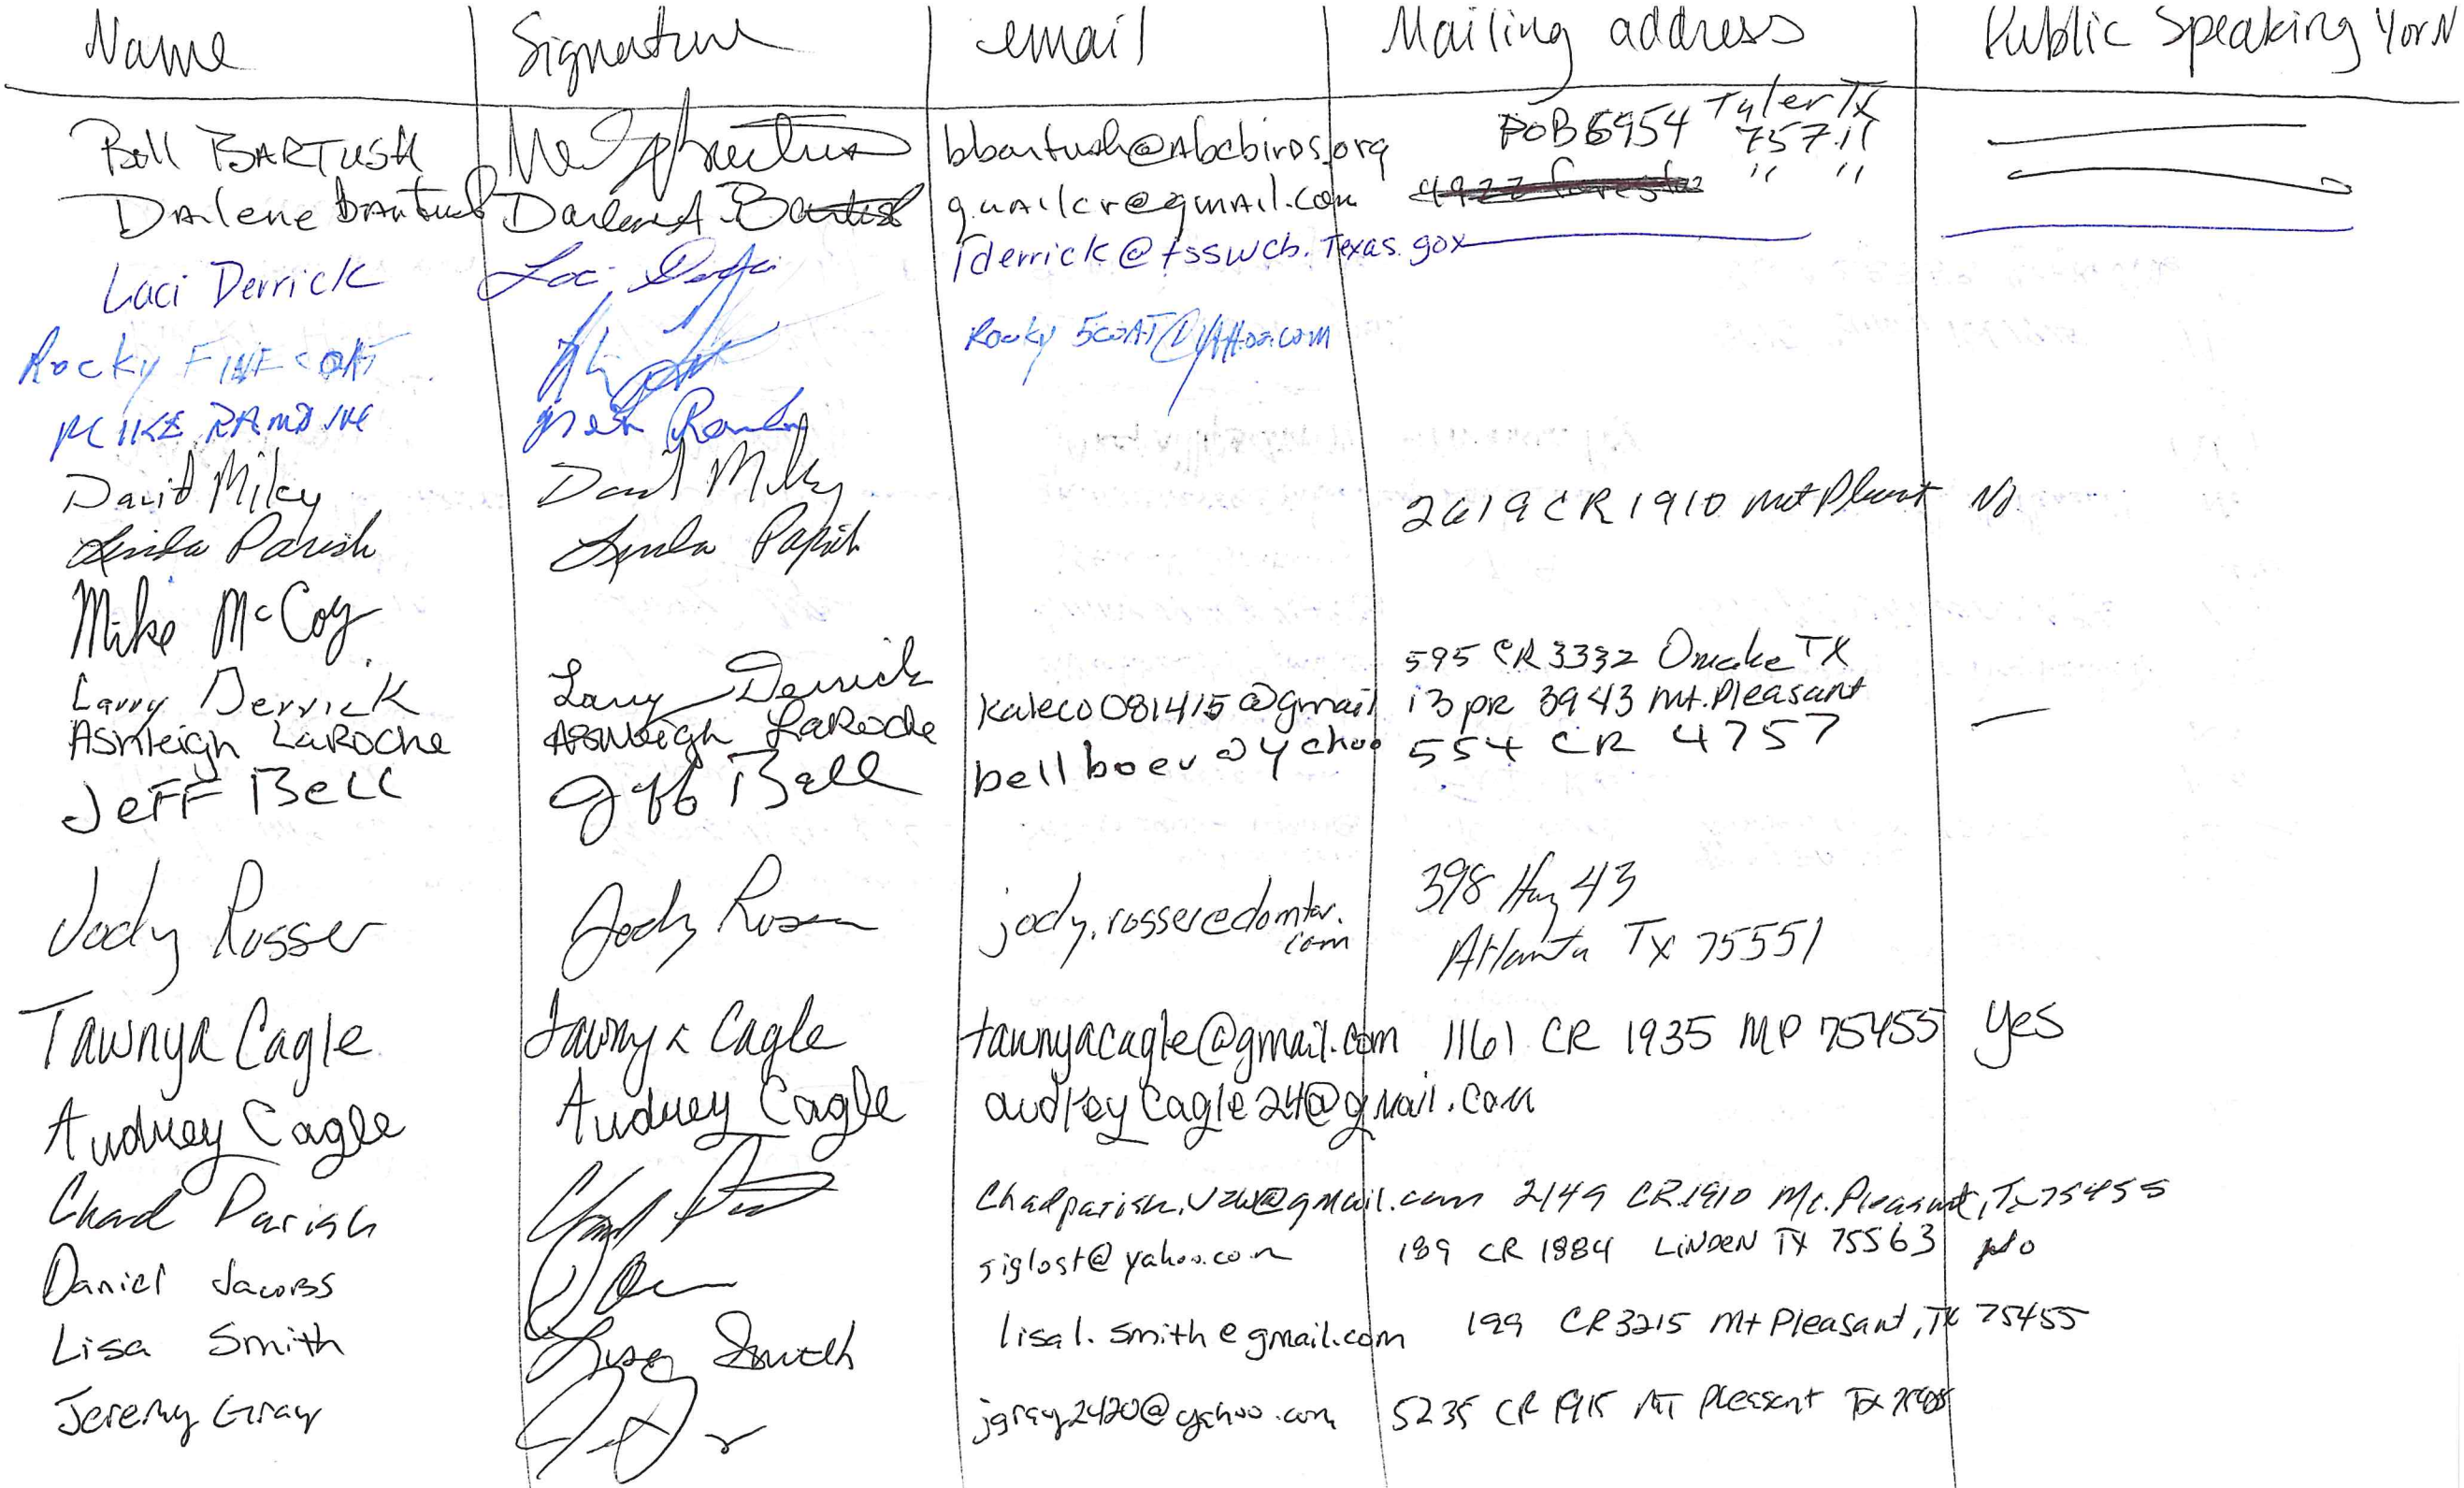 Name Signature email Mailing address Public Speaking Y or N
Bill BARTUSH bbartush@Abcbirds.org POB 6954 Tyler TX 75711
Darlene Bartush Darlene A Bartush quailcr@gmail.com " "
Laci Derrick Laci Derrick lderrick@tsswcb.texas.gov
Rocky FINFCOAT Rocky 5coAT@yAHoo.com
MIKE RAMBINE
David Miley David Miley
Linda Parish Linda Parish 2619 CR 1910 Mt Pleasant No
Mike McCoy
Larry Derrick Larry Derrick 595 CR 3332 Omaha TX
Ashleigh LaRoche Ashleigh LaRoche kaleco081415@gmail 13 pr 3943 Mt. Pleasant —
Jeff Bell Jeff Bell @yahoo 554 CR 4757
Jody Rosser Jody Rosser jody.rosser@domtar.com 398 Hwy 43
Atlanta Tx 75551
Tawnya Cagle Tawnya Cagle tawnyacagle@gmail.com 1161 CR 1935 MP 75455 yes
Audrey Cagle Audrey Cagle audreycagle24@gmail.com
Chad Parish Chadparish.vzw@gmail.com 2149 CR 1910 Mt. Pleasant, Tx 75455
Daniel Jacobs siglost@yahoo.com 189 CR 1884 LINDEN TX 75563 No
Lisa Smith Lisa Smith lisal.smith@gmail.com 199 CR 3215 Mt Pleasant, TX 75455
Jeremy Gray jgray2420@yahoo.com 5235 CR 1915 MT Pleasant Tx